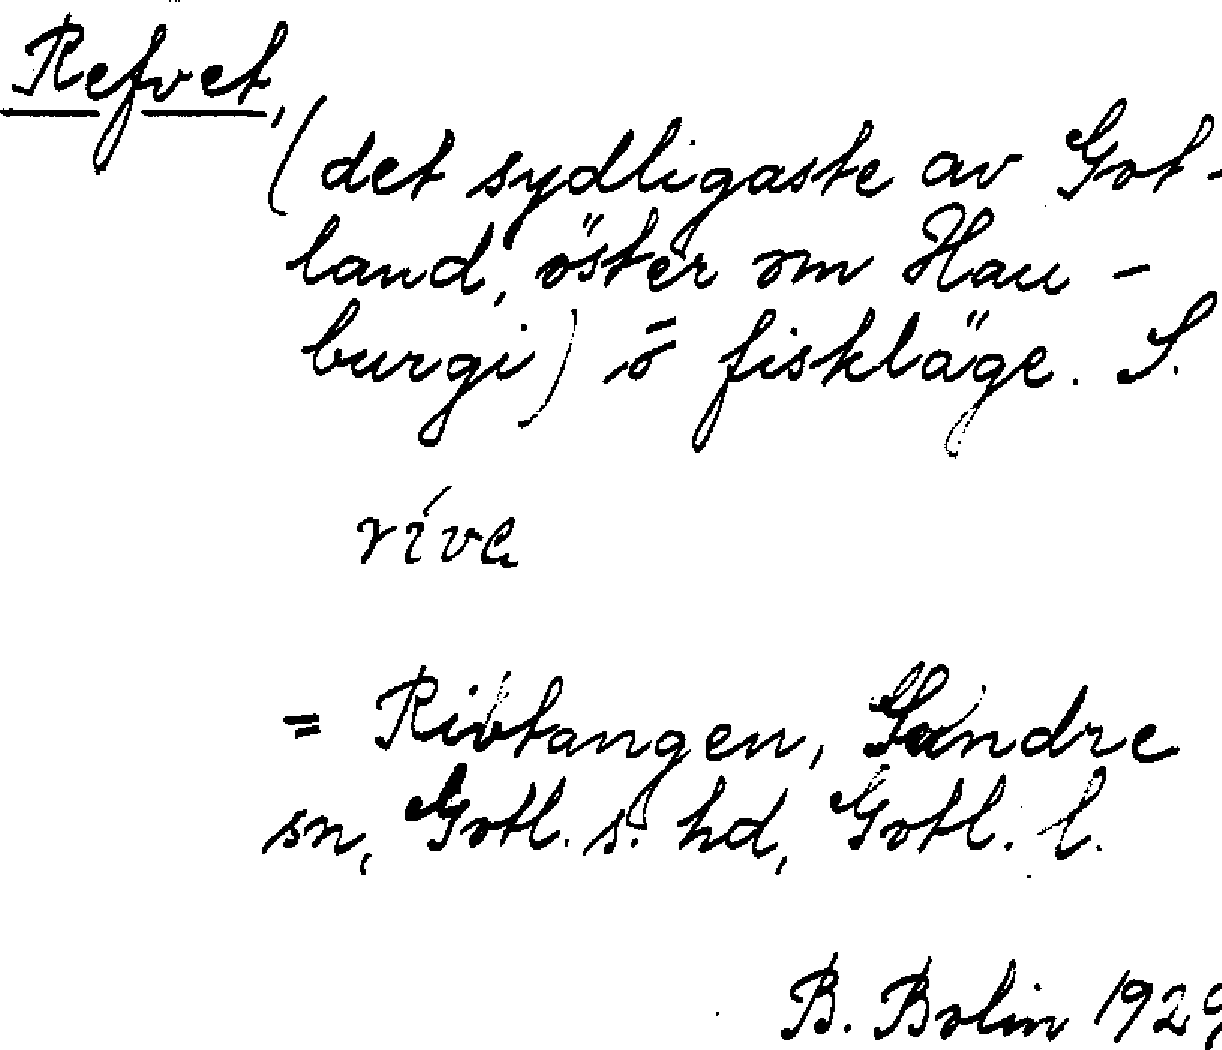 Refvet,
(det sydligaste av Got-
land, öster om Hau-
burgi) ō fiskläge. S.
ríva
= Rivtangen, Sundre
sn, Gotl. s. hd, Gotl. l.
B. Bolin 1929